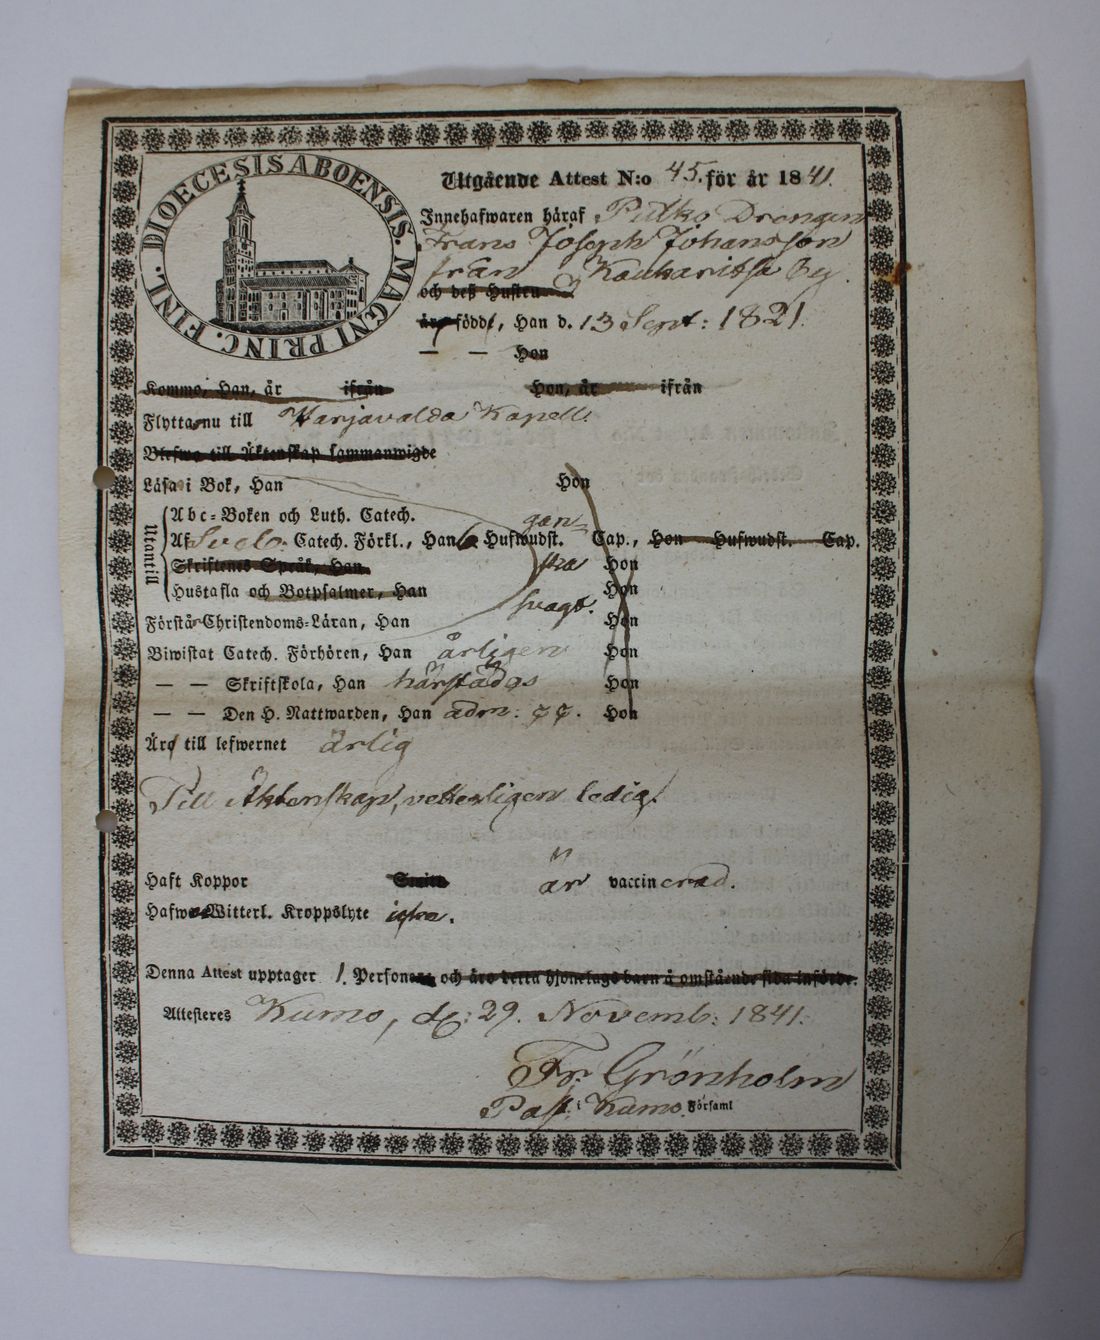 DIOECESIS ABOENSIS. MAGNI PRINC. FINL.
Utgående Attest N:o 45. för år 1841.
Innehafwaren häraf Pitko Drengen
Frans Joseph Johansson
från Kaukaritsa By.
och deß Hustru
äro född, Han d. 13 Sept: 1821.
— — Hon
Kommo, Han, år ifrån Hon, år ifrån
Flytta nu till Harjavalda Kapell.
Blefwo till Äktenskap sammanwigde
Läsa i Bok, Han Hon
Utantill
Abc-Boken och Luth. Catech.
Af Sveb. Catech. Förkl., Han 6 Hufwudst. Cap., Hon Hufwudst. Cap.
gan-
Skriftenes Språk, Han ska Hon
Hustafla och Botpsalmer, Han Hon
svagt.
Förstå Christendoms-Läran, Han Hon
Biwistat Catech. Förhören, Han årligen Hon
— — Skriftskola, Han härstädes Hon
— — Den H. Nattwarden, Han adm: Hon
Äro till lefwernet ärlig
Till Äktenskap, vetterligen ledig.
Haft Koppor är vaccinerad.
Hafwa Witterl. Kroppslyte icke.
Denna Attest upptager 1. Personer och äro detta hjonelags barn å omstående sida införde.
Attesteres Kumo, d: 29. Novemb: 1841.
Fr. Grönholm
Past. i Kumo. Församl